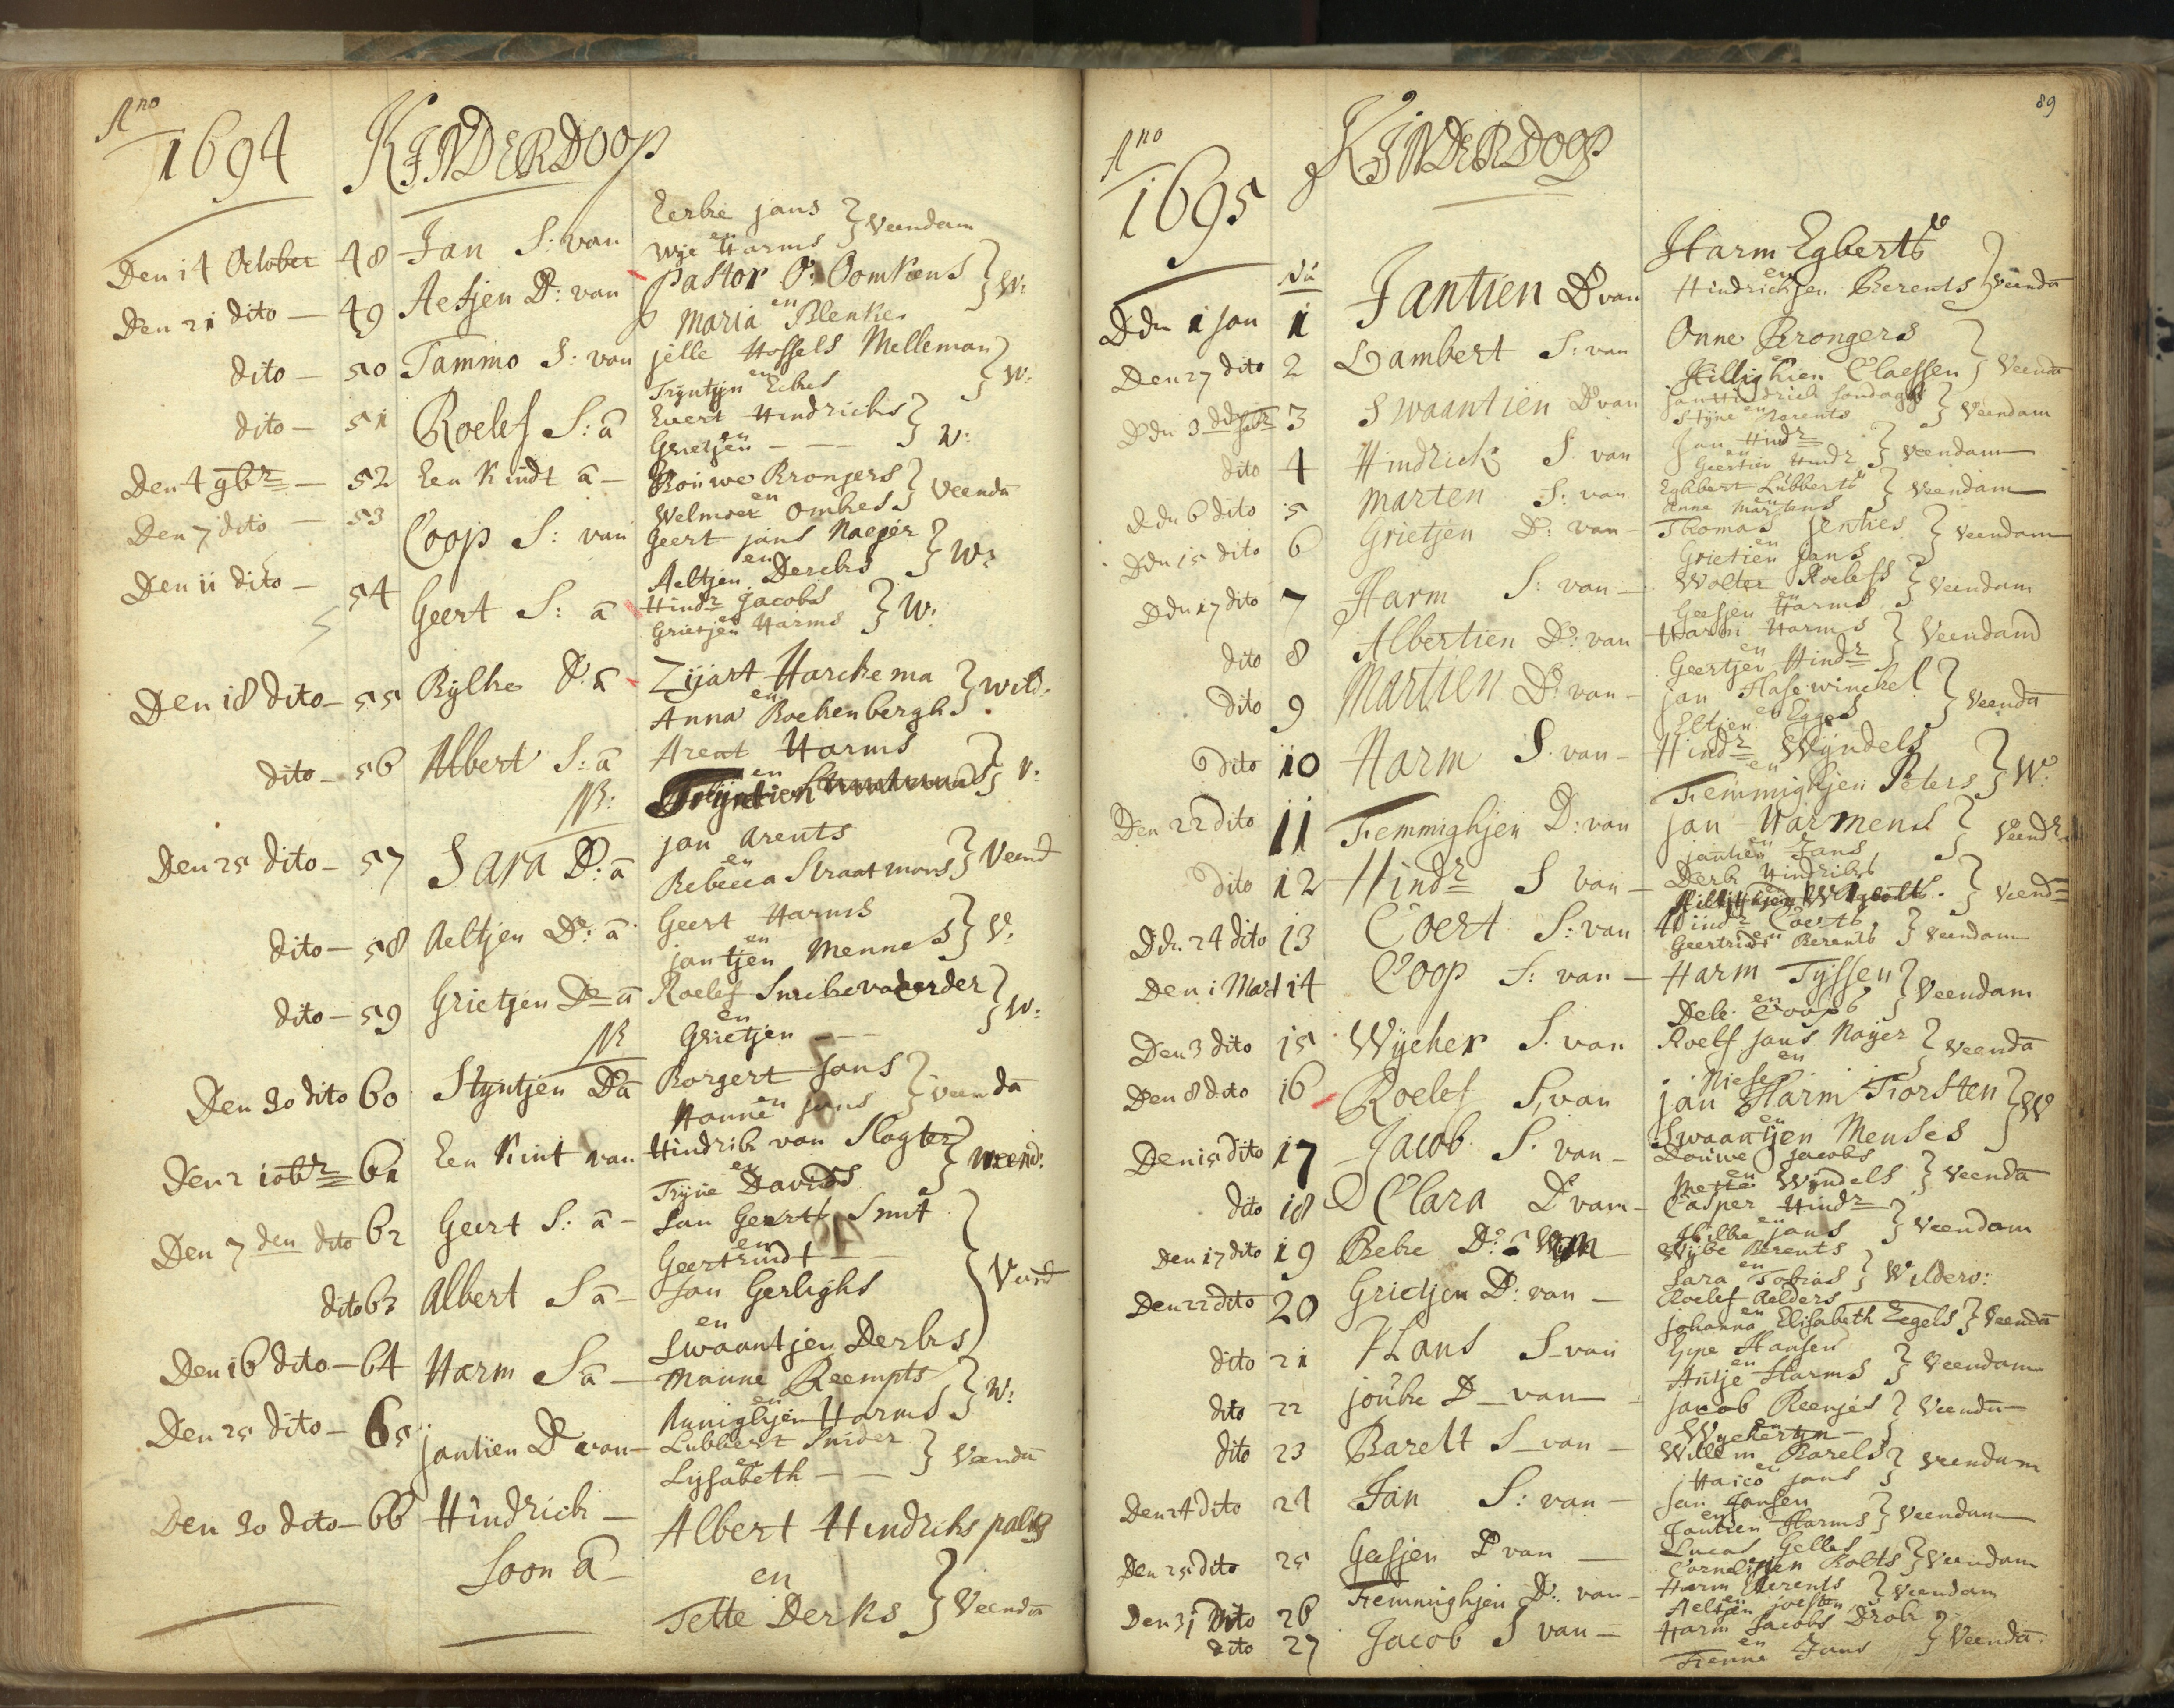 Ano
1694 KINDERDOOP
Den 14 October 48 Jan S: van Eerke jans
en
Wije Harms } Veendam
Den 21 dito — 49 Aesjen D: van Pastor O: Oomkens
en
Maria Blenke } W:
dito — 50 Tammo S: van jelle Hossels Melleman
en
Trijntijn Eekes } W:
dito — 51 Roelef S: ā Evert Hindricks
en
Grietjen — — — } V:
Den 4 9br — 52 Een Kindt ā — Bouwe Bronjers
en
Welmoer Omkes } Veendā
Den 7 dito — 53 Coop S: van Geert jans Naeyer
en
Aeltjen Dercks } W:
Den 11 dito — 54 Geert S: ā Hindr Jacobs
en
Grietjen Harms } W:
Den 18 dito — 55 Rijlke D: ā Zijart Harckema
en
Anna Bockenbergh } wild:
dito — 56 Albert S: ā Arent Harms
NB: en
Trijntien } V:
Den 25 dito — 57 Sara D: ā jan Arents
en
Rebecca Straatmans } Veend
dito — 58 Aeltjen D: ā Geert Harms
en
jantjen Mennes } V:
dito — 59 Grietjen Dr ā Roelef
NB en
Grietjen — — } W:
Den 30 dito 60 Stijntjen D ā Borgert Jans
en
Hanne jans } Veendā
Den 2 10br 61 Een Kint van Hindrik van Slogter
en
Trijne Davids } Veend:
Den 7 den dito 62 Geert S: ā — Jan Geerts Smit
en
Geertruidt —
dito 63 Albert S ā — Jan Gerlighs
en
Swaantjen Derks } Veend
Den 16 dito — 64 Harm S ā — Menne Reempts
en
Annighjen Harms } W:
Den 25 dito — 65 jantien D van — Lubbert Snider
en
Lysabeth — — } Veendā
Den 30 dito — 66 Hindrick — Albert Hindriks
Soon ā — en
Tette Derks } Veendā
89
Ano
1695 KINDERDOOP
Nu
Den 1 Jan 1 Jantien D van Harm Egberts
en
Hindrickjen Berents } Veendā
Den 27 dito 2 Lambert S: van Onne Brongers
en
Hillighien Claessen } Veendā
Den 3 3 Swaantien D van Jan Hindrick Sondagh
en
Stijne Berents } Veendam
dito 4 Hindrick S. van Jan Hindr
en
Geertien Hindr } Veendam
Den 6 dito 5 Marten S: van Egbbert Lubberts
en
Anne Martens } Veendam
Den 15 dito 6 Grietjen D: van — Thomas Jenties
en
Grietien Jans } Veendam
Den 17 dito 7 Harm S: van — Wolter Roelefs
en
Geesjen Harms } Veendam
dito 8 Albertien D: van Harm Harms
en
Geertjen Hindr } Veendam
dito 9 Martien D: van — jan Hasewinckel
en
Eltjen Eggens } Veendā
dito 10 Harm S. van — Hindr Wijndels
en
Femmighjen Peters } W:
Den 22 dito 11 Femmighjen D: van jan Harmens
en
jantien Jans } Veend
dito 12 Hindr S van — Derk Hindriks
en
} Veend
Den 24 dito 13 Coert S: van Hindr Coerts
en
Geertruid Berents } Veendam
Den 1 Mart 14 Coop S: van — Harm Tijssen
en
Dele Coops } Veendam
Den 3 dito 15 Wijcher S. van Roelf jans Nayer
en
Niese } Veendā
Den 8 dito 16 Roelef S. van jan Harm Korsten
en
Swaantjen Menses } W
Den 15 dito 17 Jacob S. van — Douwe Jacobs
en
Mette Wijndels } Veendā
dito 18 Clara D van — Casper Hindr
en
Hilke jans } Veendam
Den 17 dito 19 Beke D: ā Wijbe Berents
en
Sara Tobias } Wilderv:
Den 22 dito 20 Grietjen D: van — Roelef Relders
en
Johanna Elisabeth Eegels } Veendā
dito 21 Hans S — van Gepe Hansen
en
Antje Harms } Veendam
dito 22 jouke D — van — Jacob Reenjes
en
Wijcherten — } Veendā
dito 23 Barelt S — van — Willem Barels
en
Haico jans } Veendam
Den 24 dito 24 Jan S: van — Jan Jansen
en
Jantien Harms } Veendam
Den 25 dito 25 Geesjen D van — Lucas Gelles
en
Cornelisjen Rolts } Veendam
Den 31 dito 26 Femmighjen D: van — Harm Berents
en
Aeltjen joesten } Veendam
dito 27 Jacob S van — Harm Jacobs Drok
en
Fenne Jans } Veendā